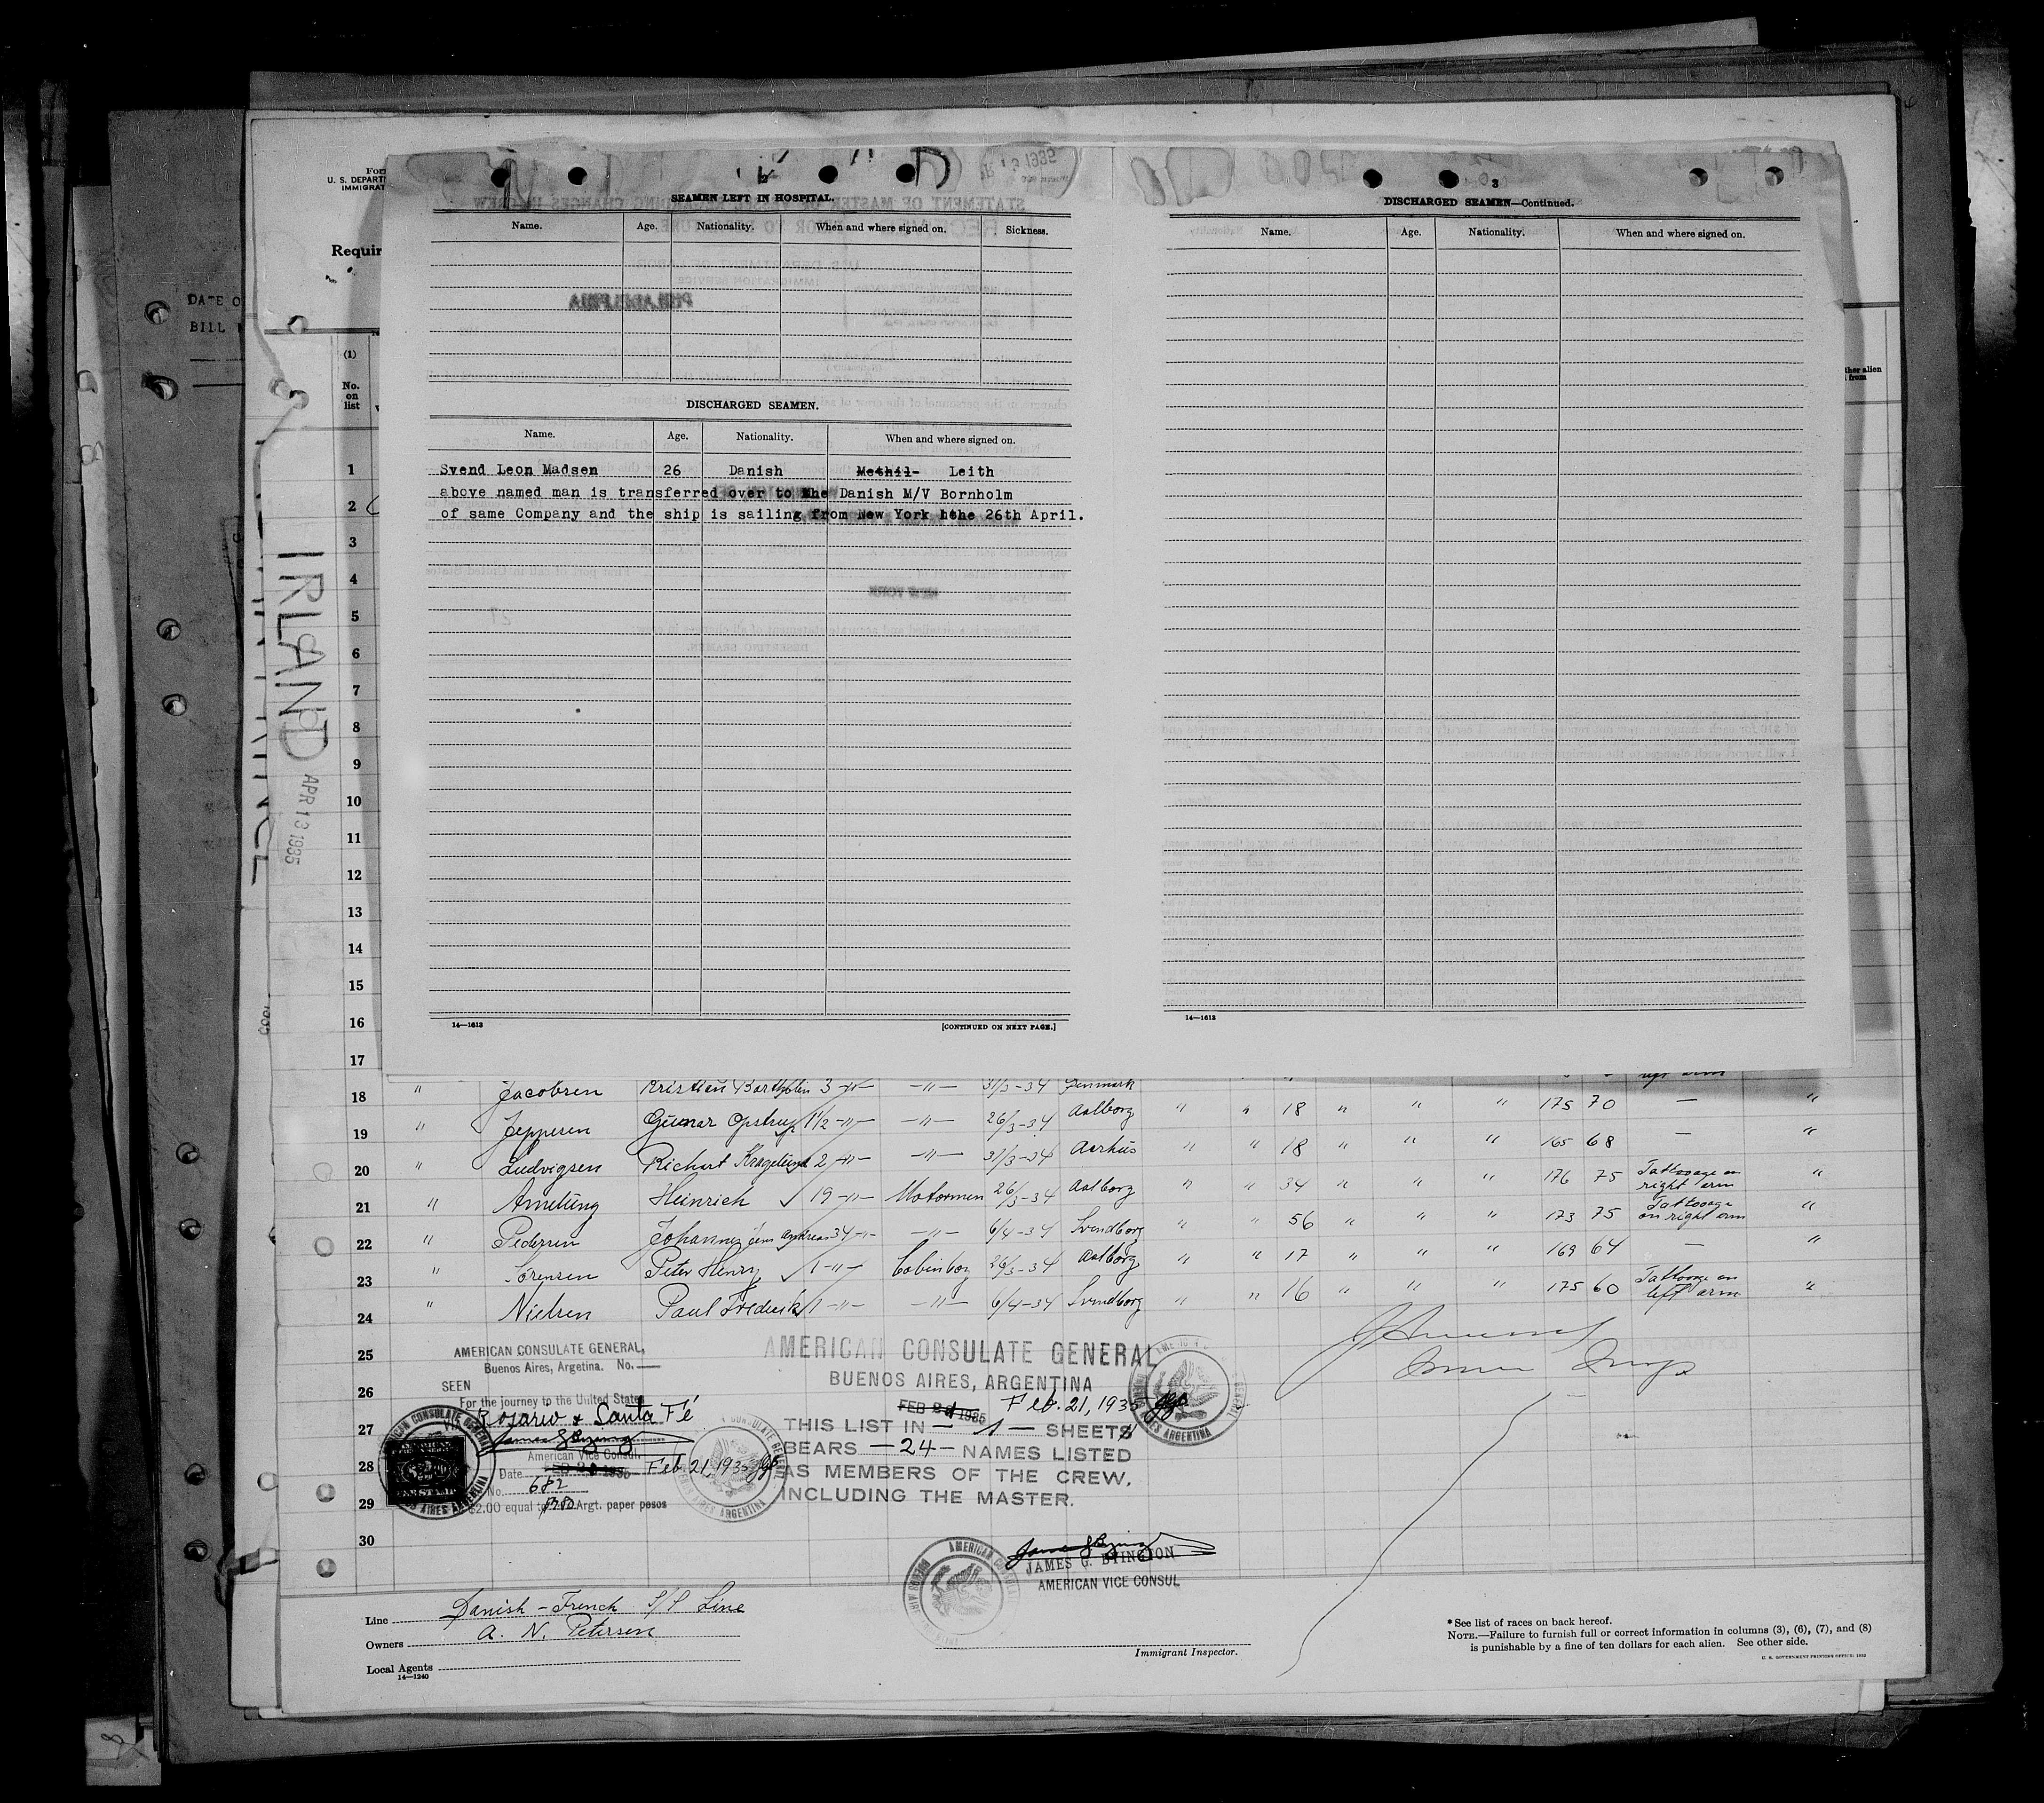 For
U. S. DEPARTM
IMMIGRAT
Requir
DATE O
BILL
(1)
No.
on
list
IRLAND
APR 13 1935
2
SEAMEN LEFT IN HOSPITAL.
Name. Age. Nationality. When and where signed on. Sickness.
PHILADELPHIA
DISCHARGED SEAMEN.
Name. Age. Nationality. When and where signed on.
Svend Leon Madsen 26 Danish Methil- Leith
above named man is transferred over to the Danish M/V Bornholm
of same Company and the ship is sailing from New York the 26th April.
NEW YORK
14—1613 [CONTINUED ON NEXT PAGE.]
3
DISCHARGED SEAMEN—Continued.
Name. Age. Nationality. When and where signed on.
14—1613
ther alien
from
1
2
3
4
5
6
7
8
9
10
11
12
13
14
15
16
17
18 " Jacobsen Kristian 3 -"- -"- 31/3-34 Denmark
19 " Jeppesen Gunnar Opstrup 1 1/2 -"- -"- 26/3-34 Aalborg " " 18 " " " 175 70 — "
20 " Ludvigsen Richart Kragelund 2 -"- -"- 31/3-34 Aarhus " " 18 " " " 165 68 — "
21 " Amelung Heinrich 19 -"- Motormen 26/3-34 Aalborg " " 34 " " " 176 75 Tattooage on right arm "
22 " Pedersen Johannes Jens Andreas 34 -"- -"- 6/4-34 Svendborg " " 56 " " " 173 75 Tattooage on right arm "
23 " Sørensen Peter Henry 1 -"- Cabinboy 26/3-34 Aalborg " " 17 " " " 169 64 — "
24 " Nielsen Paul Frederik 1 -"- -"- 6/4-34 Svendborg " " 16 " " " 175 60 Tattooage on left arm "
25
26
27
28
29
30
AMERICAN CONSULATE GENERAL,
Buenos Aires, Argetina. No.
SEEN
For the journey to the United States
Via Rosario & Santa Fé
James G Byington
American Vice Consul
Date Feb 21, 1935
No. 682
$2.00 equal to Argt. paper pesos
AMERICAN CONSULATE GENERAL
BUENOS AIRES, ARGENTINA
FEB 21 1935 Feb. 21, 1935
THIS LIST IN — 1 — SHEETS
BEARS —24— NAMES LISTED
AS MEMBERS OF THE CREW,
INCLUDING THE MASTER.
James G Byington
JAMES G. BYINGTON
AMERICAN VICE CONSUL
Line Danish - French S/S Line
Owners A. N. Petersen
Local Agents
14—1240
Immigrant Inspector.
* See list of races on back hereof.
NOTE.—Failure to furnish full or correct information in columns (3), (6), (7), and (8)
is punishable by a fine of ten dollars for each alien. See other side.
U. S. GOVERNMENT PRINTING OFFICE: 1932